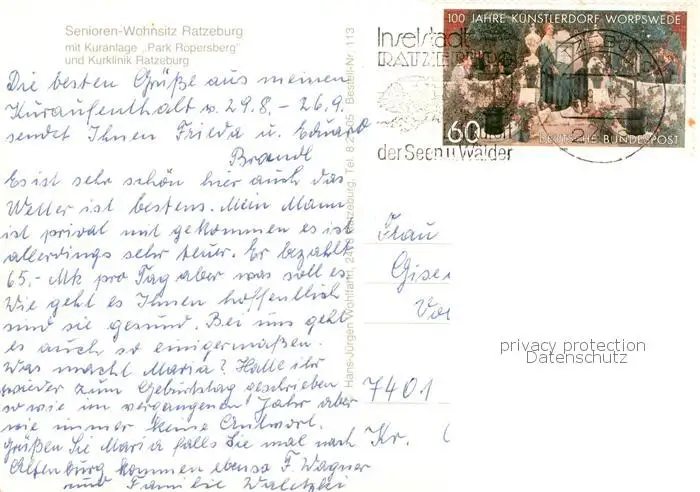 Senioren-Wohnsitz Ratzeburg
mit Kuranlage „Park Röpersberg"
und Kurklinik Ratzeburg
Die besten Grüße aus meinem
Kuraufenthalt v. 29.8. - 26.9.
sendet Ihnen Frieda u. Eduard
Brandl
Es ist sehr schön hier auch das
Wetter ist bestens. Mein Mann
ist privat mit gekommen es ist
allerdings sehr teuer. Er bezahlt
65,- Mk pro Tag aber was soll es
Wie geht es Ihnen hoffentlich
sind sie gesund. Bei uns geht
es auch so einigermaßen.
Was macht Maria? Hatte ihr
wieder zum Geburtstag geschrieben
so wie im vergangenen Jahr aber
wie immer keine Antwort.
Grüßen Sie Maria falls Sie mal nach
Altenburg kommen ebenso F. Wagner
und Familie
Hans-Jürgen Wohlfahrt, Ratzeburg, Tel. Bestell-Nr. 113
Inselstadt
RATZEBURG
der Seen u. Wälder
100 JAHRE KÜNSTLERDORF WORPSWEDE
60
DEUTSCHE BUNDESPOST
Frau
Gise
7401
Kr.
privacy protection
Datenschutz